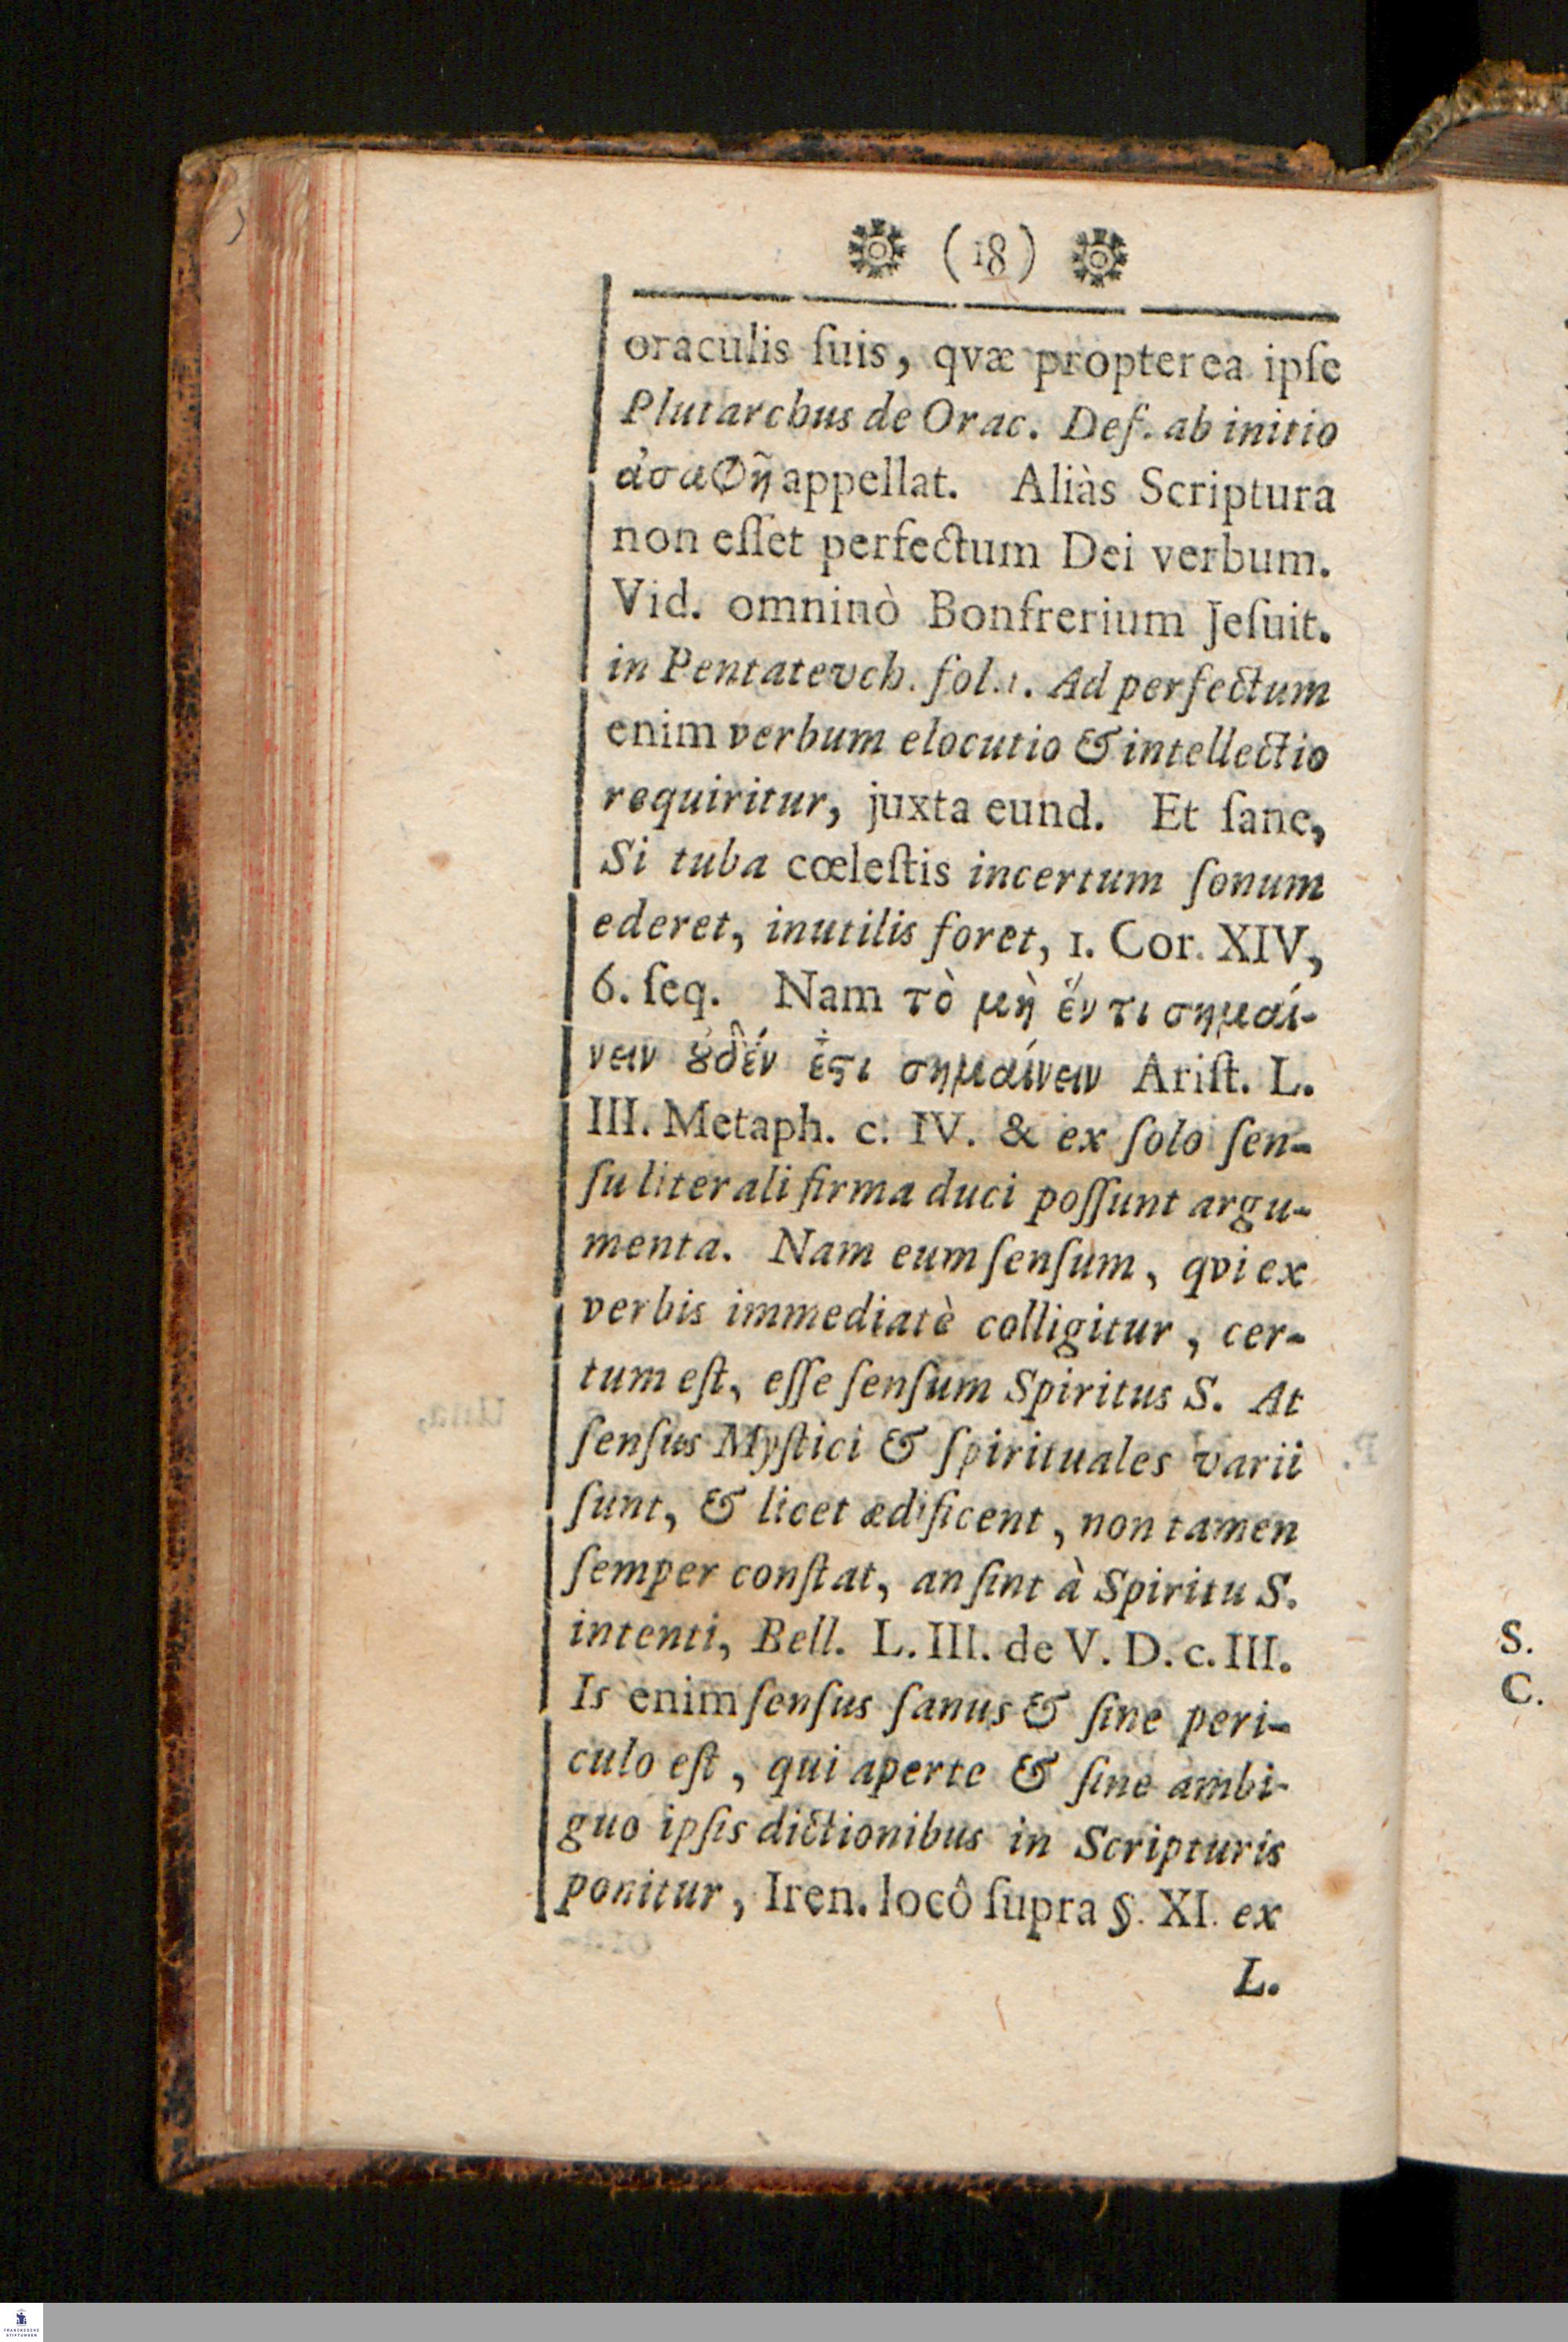 (18)
oraculis ſuis, qvæ propterea ipſe
Plutarchus de Orac. Def. ab initio
ἀσαφῆ appellat. Aliàs Scriptura
non eſſet perfectum Dei verbum.
Vid. omninò Bonfrerium Jeſuit.
in Pentatevch. fol. 1. Ad perfectum
enim verbum elocutio & intellectio
requiritur, juxta eund. Et ſane,
Si tuba cœleſtis incertum ſonum
ederet, inutilis foret, 1. Cor. XIV,
6. ſeq. Nam τὸ μὴ ἕν τι σημαί-
νειν ȣ̓δέν ἐϛι σημαίνειν Ariſt. L.
III. Metaph. c. IV. & ex ſolo ſen-
ſu literali firma duci poſſunt argu-
menta. Nam eum ſenſum, qvi ex
verbis immediatè colligitur, cer-
tum eſt, eſſe ſenſum Spiritus S. At
ſenſus Myſtici & ſpirituales varii
ſunt, & licet ædificent, non tamen
ſemper conſtat, an ſint à Spiritu S.
intenti, Bell. L. III. de V. D. c. III.
Is enim ſenſus ſanus & ſine peri-
culo eſt, qui aperte & ſine ambi-
guo ipſis dictionibus in Scripturis
ponitur, Iren. locô ſupra §. XI. ex
L.
S.
C.
FRANCKESCHE
STIFTUNGEN